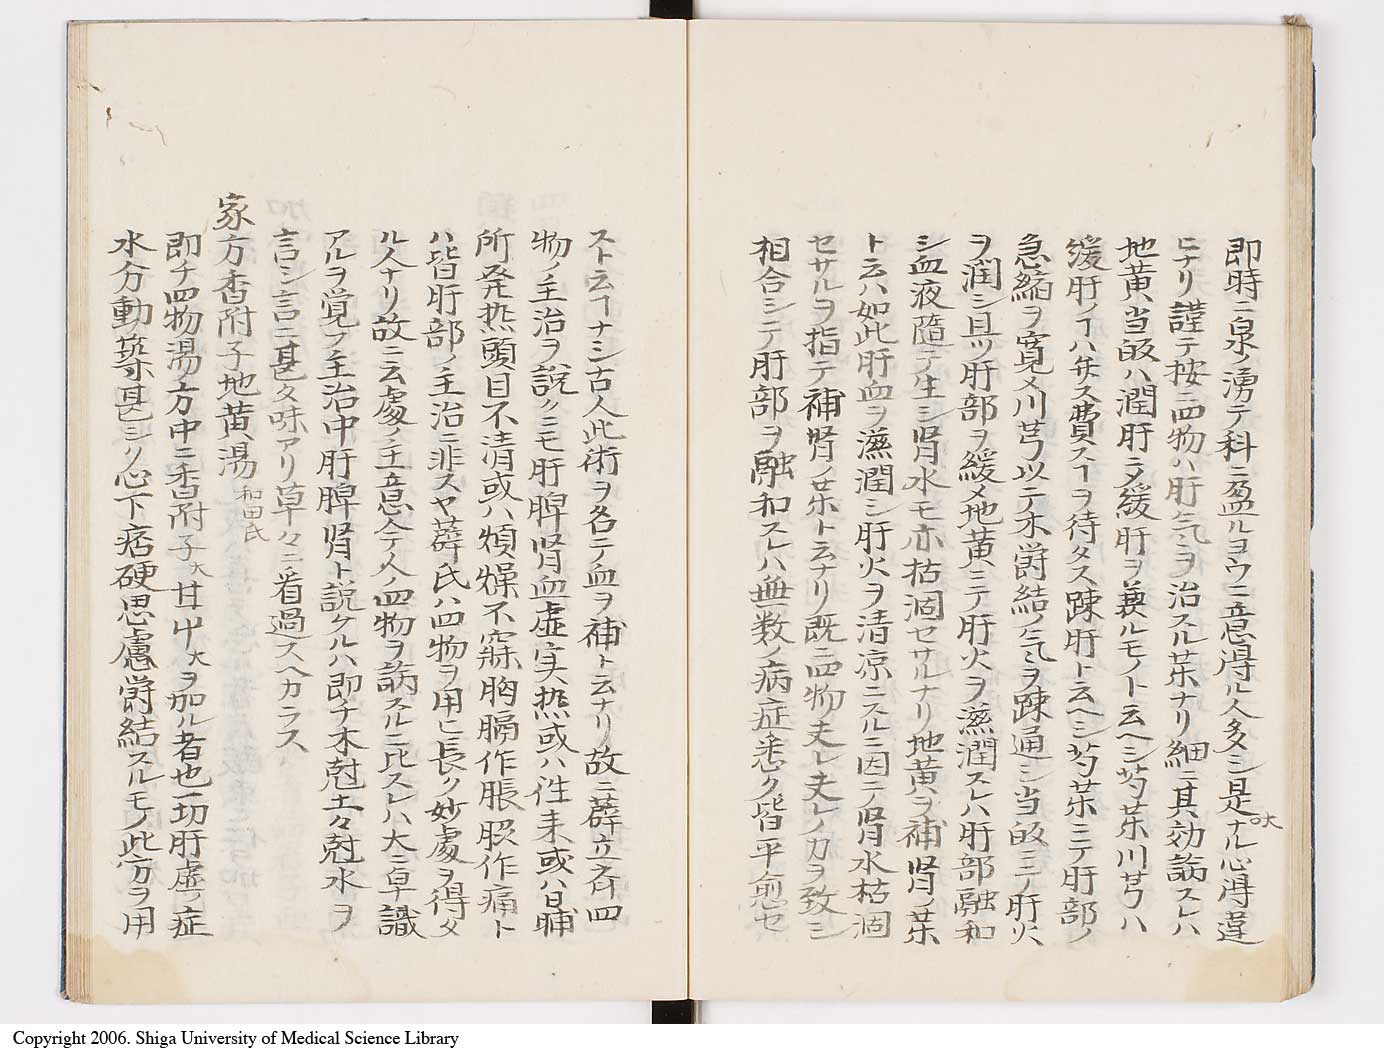 即時ニ泉ノ湧テ科ニ盈ルヨウニ意得ル人多シ是大ナル心得違
ヒナリ謹テ按ニ四物ハ肝氣ヲ治スル藥ナリ細ニ其効論スレハ
地黄当皈ハ潤肝ニノ緩肝ヲ兼ルモノト云ヘシ芍藥川芎ハ
緩肝ノヿハ弁ス費スヿヲ待タス疎肝ト云ヘシ芍藥ニテ肝部ノ
急縮ヲ寛メ川芎以テ木欝結ノ氣ヲ疎通シ当皈ニテ肝火
ヲ潤シ且ツ肝部ヲ緩メ地黄ニテ肝火ヲ滋潤スレハ肝部融和
シ血液隨テ生シ腎水モ亦枯涸セサルナリ地黄ヲ補腎ノ藥
ト云ハ如此肝血ヲ滋潤シ肝火ヲ清凉ニスルニ因テ腎水枯涸
セサルヲ指テ補腎ノ藥ト云ナリ既ニ四物夫レ夫レノカヲ致シ
相合シテ肝部ヲ融和スレハ無数ノ病症悉ク皆平愈セ
スト云ヿナシ古人此術ヲ名テ血ヲ補ト云ナリ故ニ薛立斉四
物ノ主治ヲ説クニモ肝脾腎血虚実熱或ハ性来或ハ日晡
所発熱頭目不清或ハ煩燥不寐胸膈作脹脇作痛ト
ハ皆肝部ノ主治ニ非スヤ薛氏ハ四物ヲ用ヒ長ク妙處ヲ得タ
ル人ナリ故ニ云處ノ主意今テ人ノ血物ヲ論スルニ比スレハ大ニ卓識
アルヲ覚フ主治中肝脾腎ト説クルハ即チ木尅土々尅水ヲ
言シ言ニ甚タ味アリ草々ニ看過スヘカラス
家方香附子地黄湯 和田氏
即チ四物湯ノ方中ニ香附子大甘屮大ヲ加ル者也一切肝虚ノ症
水分動築甚シク心下痞硬思慮欝結スルモノ此方ヲ用